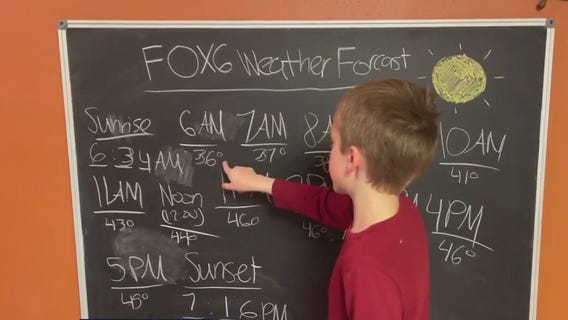 FOX6 Weather Forcast
Sunrise 6AM 7AM 8A 10AM
6:34AM 36° 37° 41°
11AM Noon 4PM
43° (12:00) 46° 46° 46°
44°
5PM Sunset
45° 7:16PM